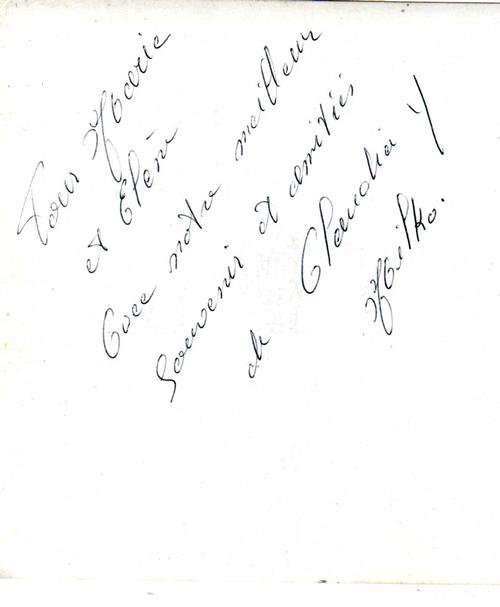 Pour Marie
et Elène
Avec notre meilleur
Souvenir et amitiés
de Claudia y
Milko.